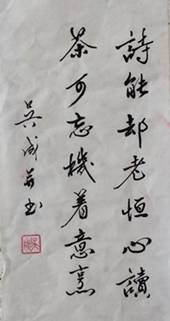 詩能却老恒心讀
茶可忘機着意烹
吳成岳书